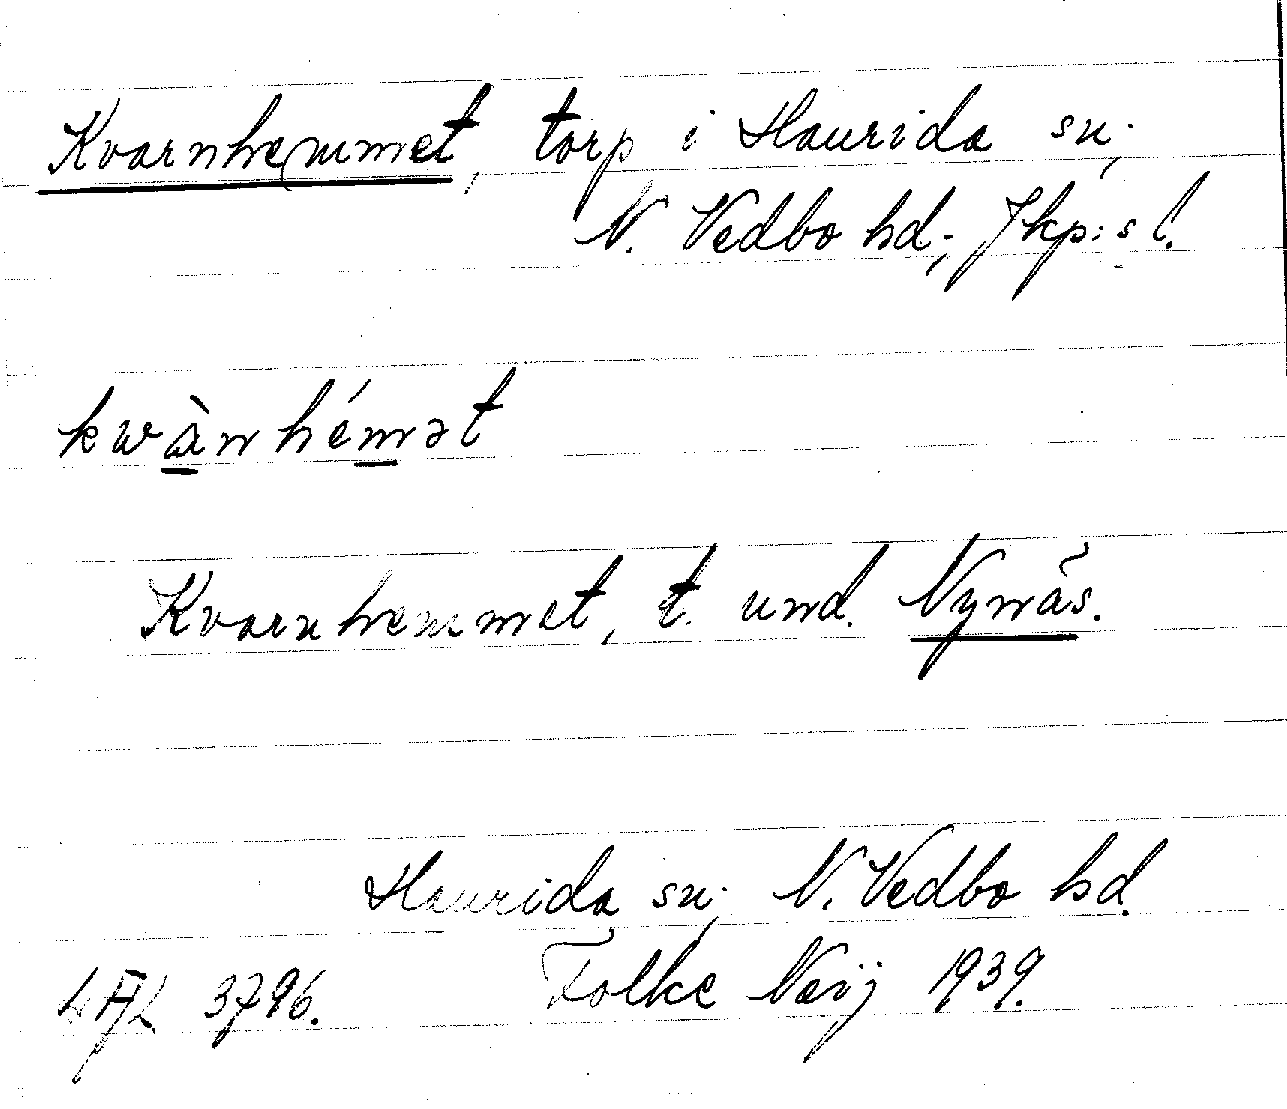 Kvarnhemmet, torp i Haurida sn;
N. Vedbo hd; Jkp:s l.
kwànhémət
Kvarnhemmet, t. und. Nynäs.
Haurida sn; N. Vedbo hd.
LAL 3796. Folke Neij 1939.